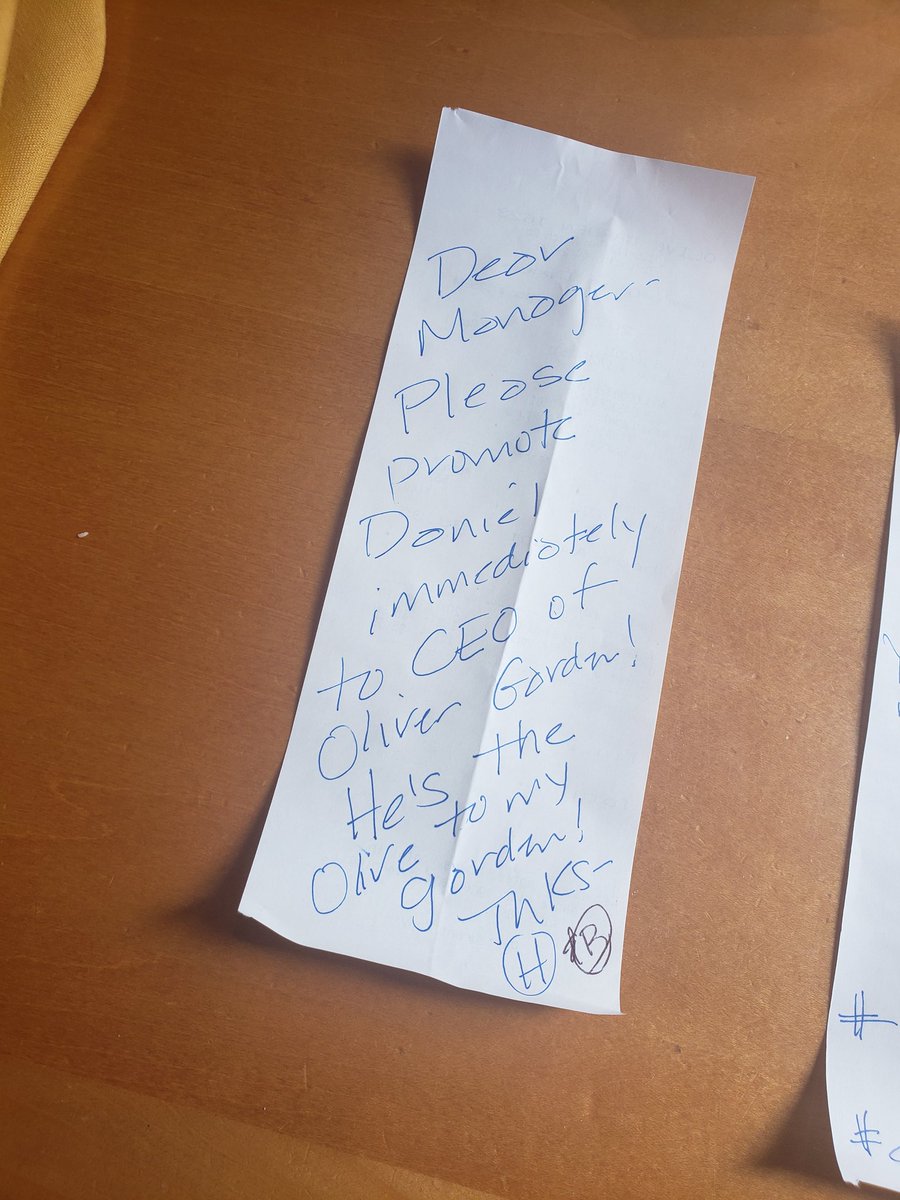 Dear
Manager-
Please
promote
Daniel
immediately
to CEO of
Oliver Garden!
He's the
Olive to my
garden!
Thks-
H &B
#
#